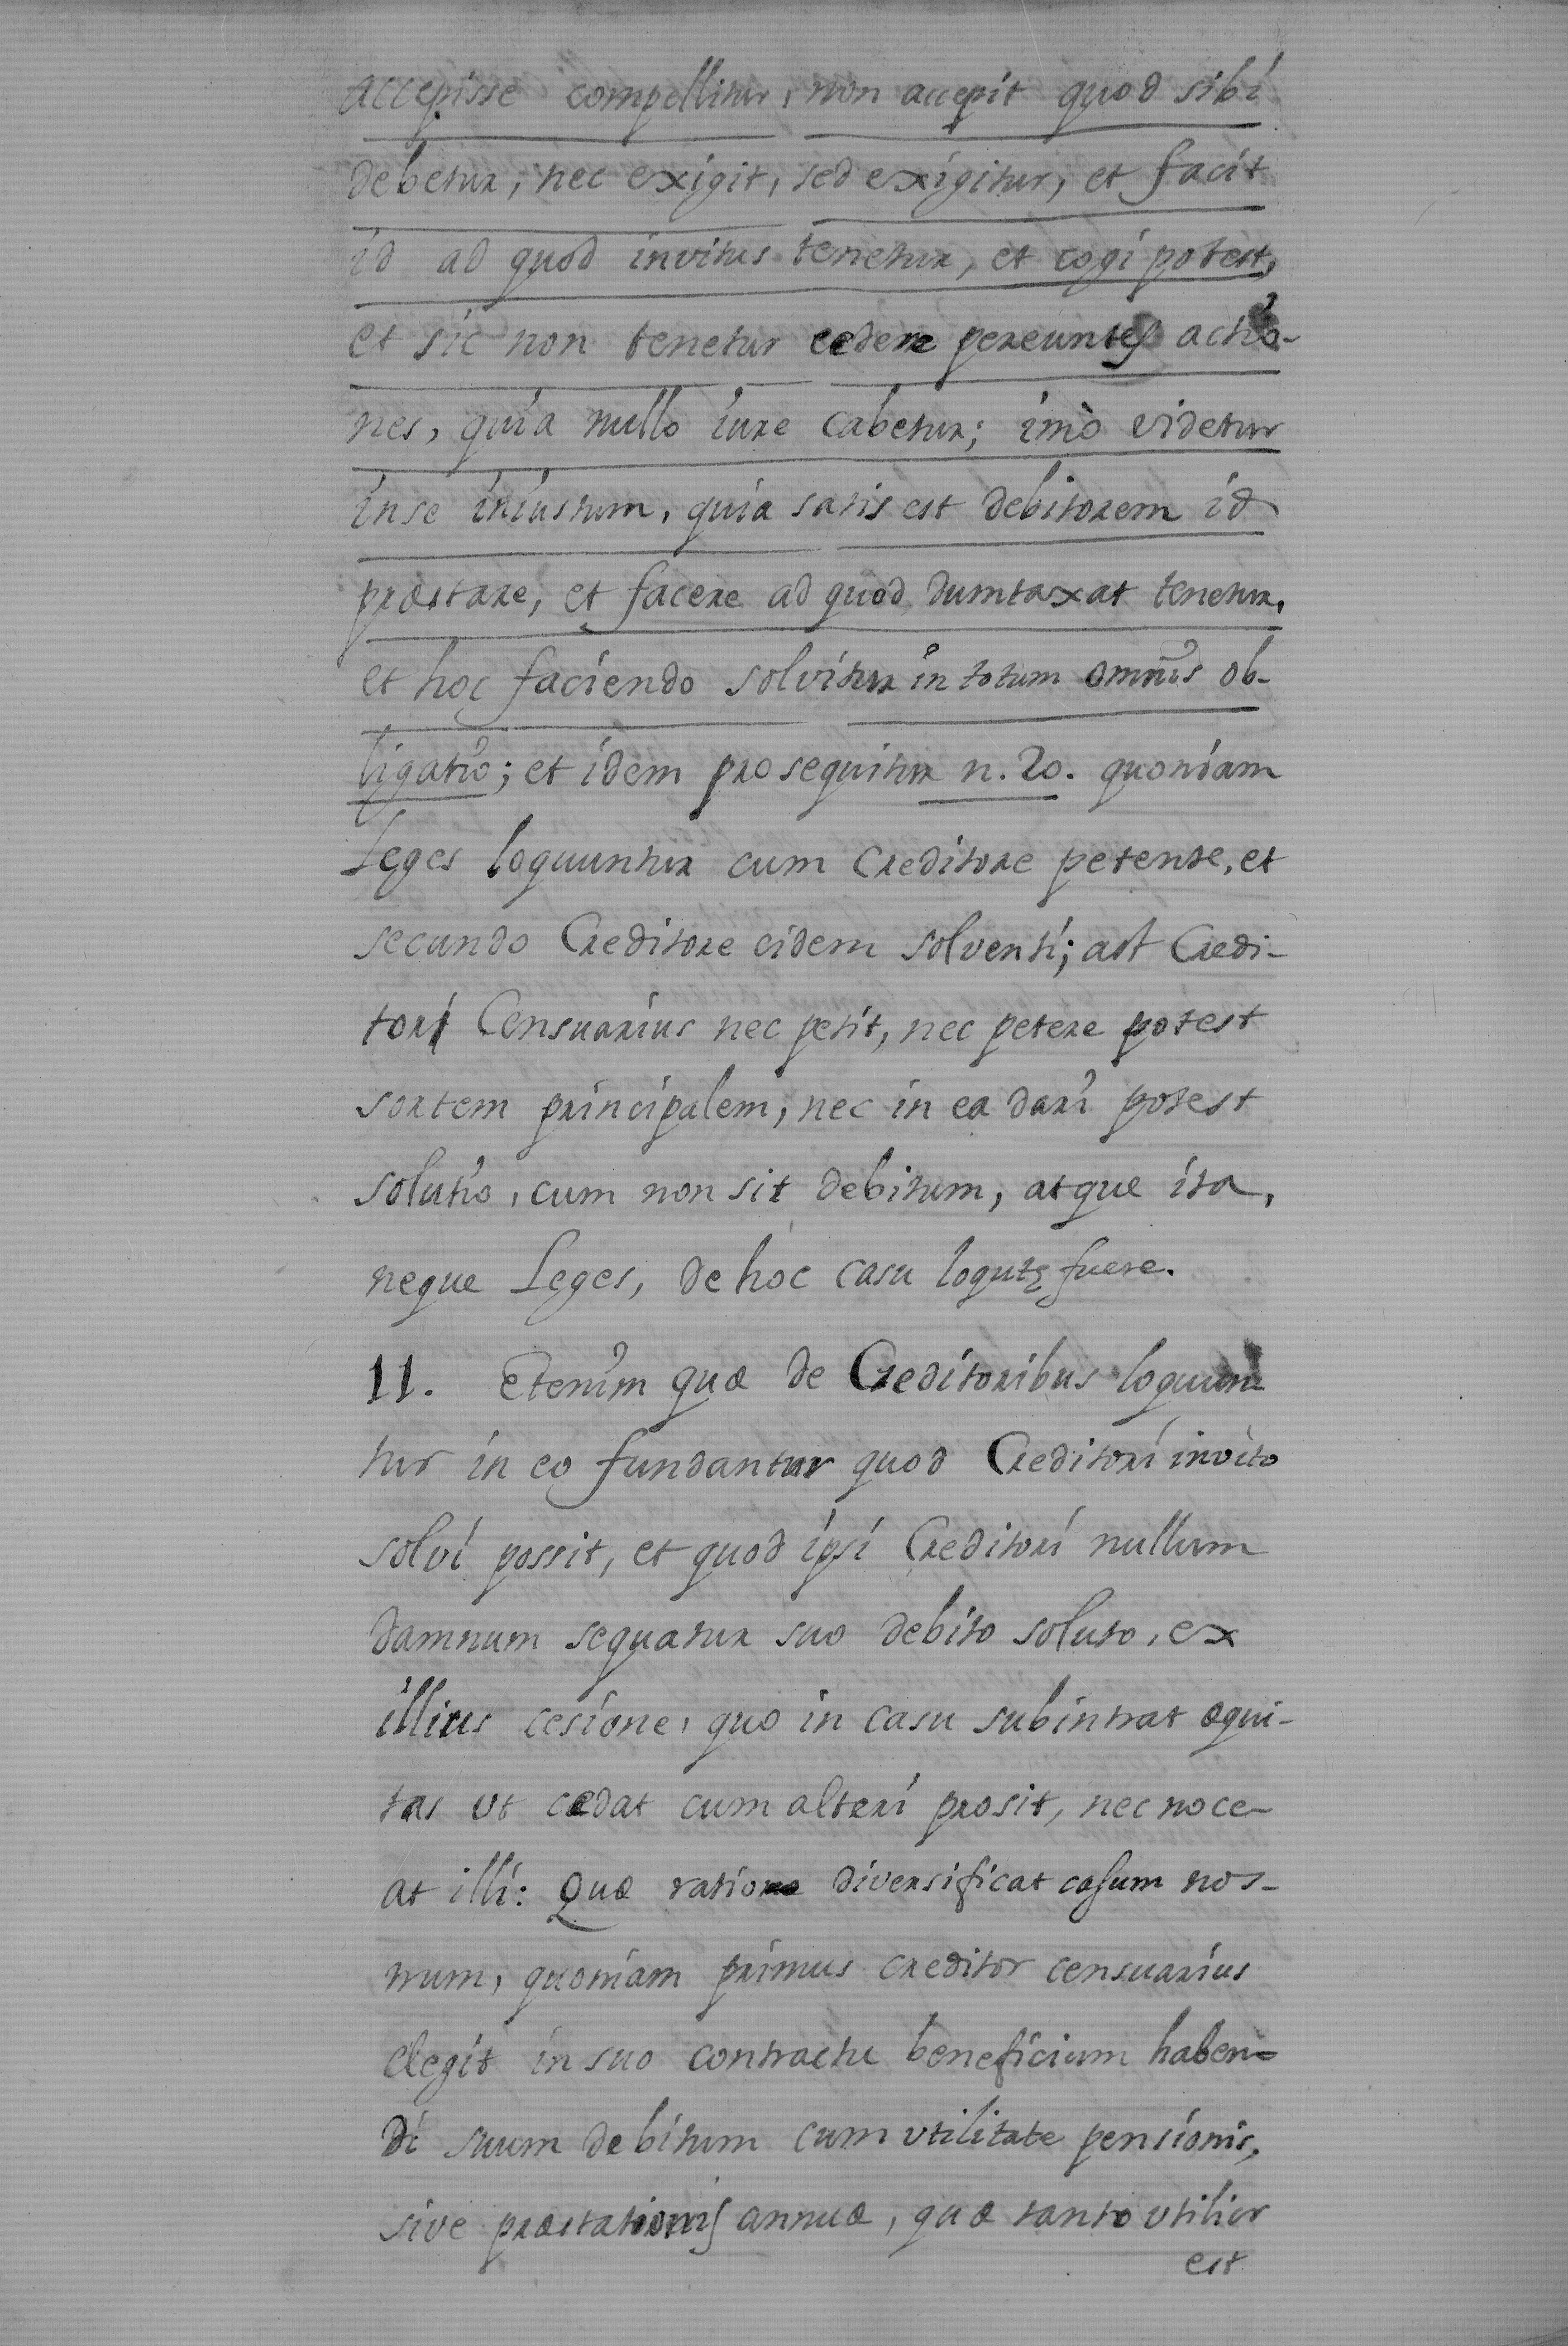 accepisse compellitur, non accepit quod sibi
debetur, nec exigit, sed exigitur, et facit
id ad quod invitus tenetur, et cogi potest,
et sic non tenetur cedere pereuntes actio-
nes, quia nullo iure cabetur; imò videtur
inse iniustum, quia satis est debitorem id
præstare, et facere ad quod dumtaxat tenetur,
et hoc faciendo solvitur in totum omnis ob-
ligatio; et idem prosequitur n. 20. quoniam
Leges loquuntur cum Creditore petente, et
secundo Creditore eidem solventi; ast Credi-
tori Censuarius nec petit, nec petere potest
sortem principalem, nec in ea dari potest
solutio, cum non sit debitum, atque ita,
neque Leges, de hoc casu loqutę fuere.
11. Etenim quæ de Creditoribus loquun-
tur in eo fundantur quod Creditori invito
solvi possit, et quod ipsi Creditori nullum
damnum sequatur suo debito soluto, ex
illius cesione, quo in casu subintrat æqui-
tas ut cedat cum alteri prosit, nec noce-
at illi: Quæ ratio diversificat casum nos-
trum, quoniam primus creditor censuarius
elegit in suo contractu beneficium haben=
di suum debitum cum utilitate pensionis,
sive præstationis annuæ, quæ tanto utilior
est